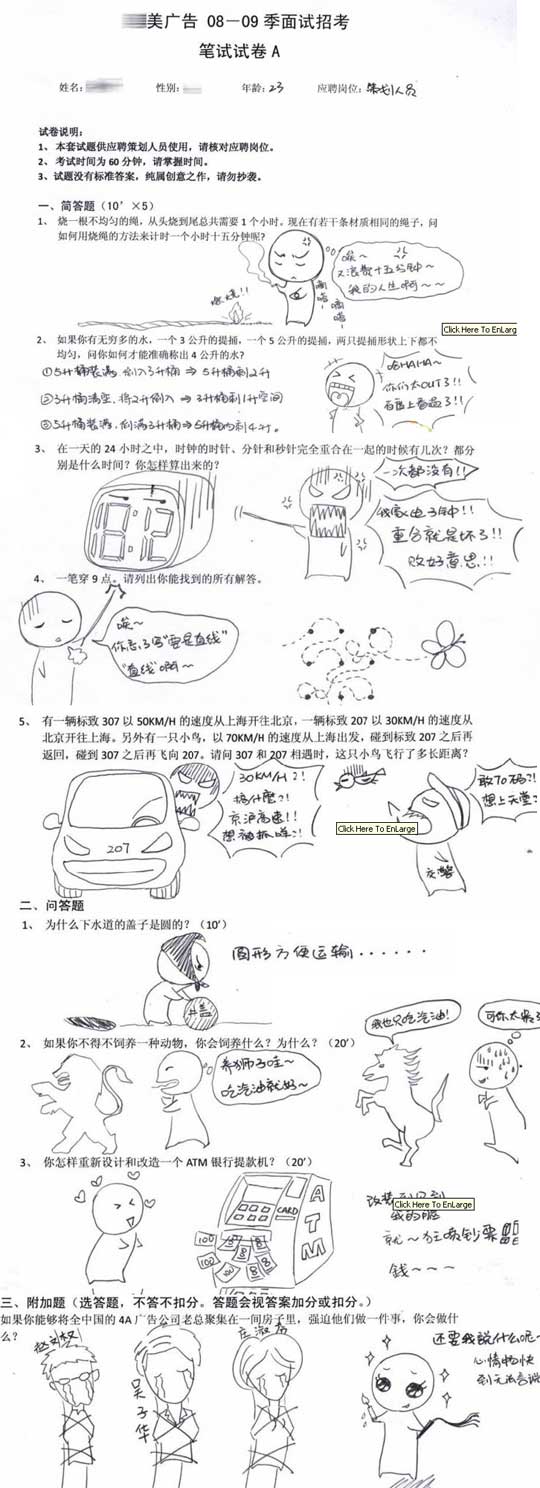 美广告 08－09季面试招考
笔试试卷A
姓名：
性别：
年龄：23
应聘岗位：策划人员
试卷说明：
1、本套试题供应聘策划人员使用，请核对应聘岗位。
2、考试时间为60分钟，请掌握时间。
3、试题没有标准答案，纯属创意之作，请勿抄袭。
一、简答题（10’×5）
1、烧一根不均匀的绳，从头烧到尾总共需要1个小时。现在有若干条材质相同的绳子，问
如何用烧绳的方法来计时一个小时十五分钟呢？
唉～
又浪费十五分钟～
我的人生啊～～
燃烧!!
嘀嗒
嘀嗒
Click Here To EnLarg
2、如果你有无穷多的水，一个3公升的提捅，一个5公升的提捅，两只提捅形状上下都不
均匀，问你如何才能准确称出4公升的水？
①5升桶装满，倒入3升桶 ⇒ 5升桶剩2升
②3升桶清空，将2升倒入 ⇒ 3升桶剩1升空间
③5升桶装满，倒满3升桶⇒5升桶内剩4升。
哈HAHA～
你们太OUT了!!
百度上看过了!!
3、在一天的24小时之中，时钟的时针、分针和秒针完全重合在一起的时候有几次？都分
别是什么时间？你怎样算出来的？
18:12
一次都没有!!
我家电子钟!!
重合就是坏了!!
败好意思!!
4、一笔穿9点。请列出你能找到的所有解答。
唉～
你忘了写“要是直线”
“直线”啊～
5、有一辆标致307以50KM/H的速度从上海开往北京，一辆标致207以30KM/H的速度从
北京开往上海。另外有一只小鸟，以70KM/H的速度从上海出发，碰到标致207之后再
返回，碰到307之后再飞向207。请问307和207相遇时，这只小鸟飞行了多长距离？
207
30KM/H?!
搞什麼?!
京沪高速!!
想被抓咩?!
Click Here To EnLarge
敢70码?!
想上天堂?!
交警
二、问答题
1、为什么下水道的盖子是圆的？（10’）
圆形方便运输······
井盖
2、如果你不得不饲养一种动物，你会饲养什么？为什么？（20’）
养狮子哇～
吃汽油就好～
我也只吃汽油!
可你太暴
3、你怎样重新设计和改造一个ATM银行提款机？（20’）
CARD
ATM
100
100
100
改装到
Click Here To EnLarge
我的脸
就～狂喷钞票!!!
錢～～～
三、附加题（选答题，不答不扣分。答题会视答案加分或扣分。）
如果你能够将全中国的4A广告公司老总聚集在一间房子里，强迫他们做一件事，你会做什
么？
吴子华
庄淑芬
还要我说什么呢～
心情愉快
到无法言说